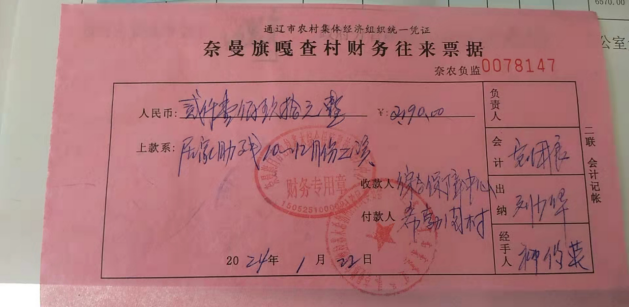 6570.00
公室
通辽市农村集体经济组织统一凭证
奈曼旗嘎查村财务往来票据
奈农负监0078147
人民币:贰仟壹佰玖拾元整 ¥:2190.00
上款系:居家助残10-12月份工资
收款人 综合保障中心
付款人 希勃图村
2024年1月22日
财务专用章
负责人
会计
出纳
经手人
二联 会计记帐